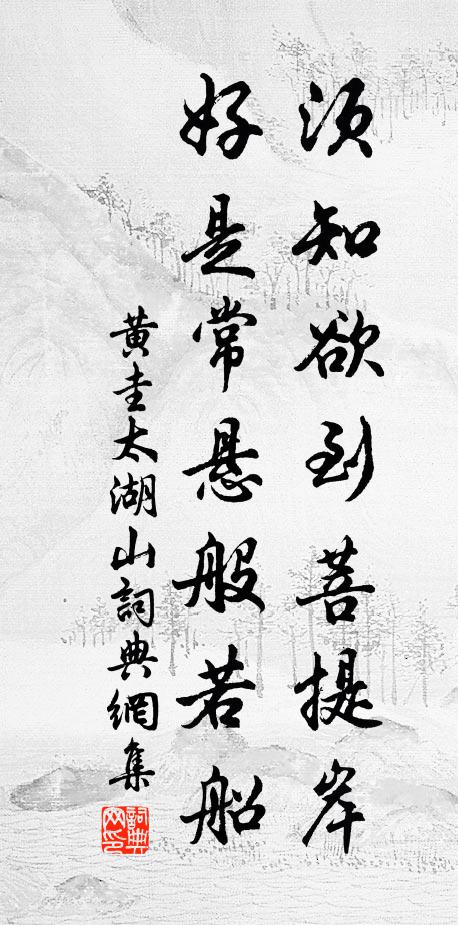 須知欲到菩提岸
好是常懸般若船
黃圭太湖山詞典網集
詞典網印